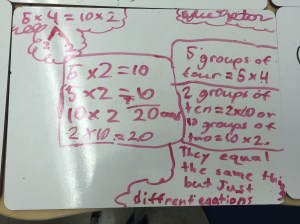 5 × 4 = 10 × 2
2 2
5 × 2 = 10
5 × 2 = 10
10 × 2 20 and
2 × 10 = 20
5 groups of
four = 5 × 4
2 groups of
ten = 2 × 10 or
10 groups of
two = 10 × 2.
They equal
the same thing
but Just
different eqations